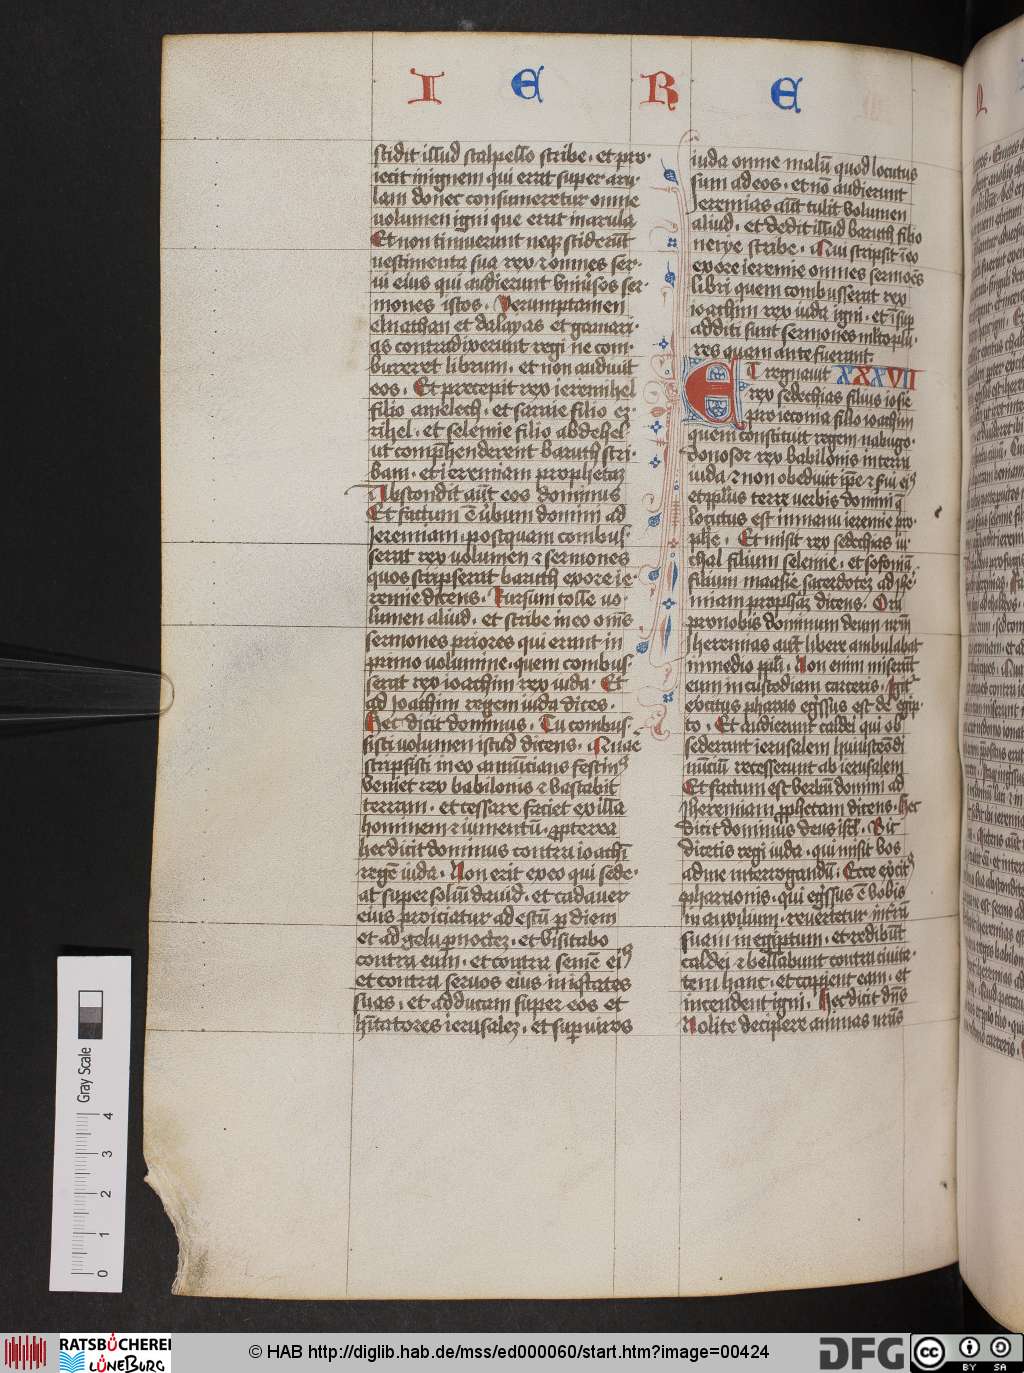 I E R E
scidit illud scalpello scribe · et pro·
iecit in ignem qui erat super aru·
lam donec consumeretur omne
uolumen igni que erat in arula
Et non timuerunt neqз sciderūt
uestimenta sua rex ⁊ omnes ser·
ui eius qui audierunt vniūsos ser·
mones istos · Verumptamen
elnathan et dalayas et gamari·
as contradixerunt regi ne com·
bureret librum · et non audiuit
eos · Et precepit rex ieremihel
filio amelech · et saraie filio ez·
rihel · et selemie filio abdehel
ut comp̄henderent baruch scri·
bam · et ieremiam prophetaz
Abscondit aūt eos dominus
Et factum ē ūbum domini ad
Jeremiam · postquam combus·
serat rex uolumen ⁊ sermones
quos scripserat baruth exore ie·
remie dicens · Rursum tolle uo·
lumen aliud · et scribe in eo om̄s
sermones priores qui erant in
primo uolumine · quem combus·
serat rex ioachim rex iuda · Et
ad Joachim regem iuda dices ·
Hec dicit dominus · Tu combus·
sisti uolumen istud dicens · Quare
scripsisti in eo annūcians festinꝯ
veniet rex babilonis ⁊ vastabit
terram · et cessare faciet ex illa
hominem ⁊ iumentū · ꝓpterea
hec dicit dominus contra ioachī
regē iuda · Non erit ex eo qui sede·
at super soliū dauid · et cadauer
eius proiciatur ad estū ꝑ diem
et ad gelu ꝑ noctez · et visitabo
contra eum · et contra semē eiꝯ
et contra seruos eius iniq̄tates
suas · et adducam super eos et
hītatores ierusalez · et suꝑ uiros
iuda omne malū quod locutus
sum ad eos · et nō audierunt
Jeremias aūt tulit volumen
aliud · et dedit illud baruth filio
nerye scribe · Qui scripsit ī eo
exore ieremie omnes sermōes
libri quem combusserat rex
ioachim rex iuda igni · et īsuꝑ
additi sunt sermones ml̄to plu·
res quam ante fuerant ·
ET regnauit XXXVII
rex sedechias filius iosie
pro ieconia filio ioachim
quem constituit regem nabugo·
donosor rex babilonis in terra
iuda ⁊ non obediuit ip̄e ⁊ s̄ui eiꝯ
et pp̄lus terre verbis domini q̄
locutus est in manu ieremie pro·
phe · Et misit rex sedechias iu·
chal filium selemie · et sofoniā
filium maasie sacerdotez ad ihe·
miam prophāz dicens · Ora
pro nobis dominum deum nr̄m
Jheremias aūt libere ambulabat
in medio pp̄li · Non enim miserāt
eum in custodiam carceris · Igit᷑
exercitus pharao eḡssus est de egip·
to · Et audierunt caldei qui ob·
sederant ierusalem huiuscēodi
nūcium recesserunt ab ierusalem
Et factum est verbū domini ad
Jheremiam ꝓphetam dicens · Hec
dicit dominus deus isr̄l · Sic
dicetis regi iuda · qui misit vos
ad me interrogandū · Ecce exercitꝯ
pharaonis · qui eḡssus ē vobis
in auxilium · reuertetur in t̄rā
suam in egiptum · et redibūt
caldei ⁊ bellabunt contra ciuita·
tem hanc · et capient eam · et
incendent igni · Hec dicit dn̄s
Nolite decipere animas vr̄as
Gray Scale
0 1 2 3 4
RATSBÜCHEREI
LÜNEBURG
© HAB http://diglib.hab.de/mss/ed000060/start.htm?image=00424
DFG
cc BY SA